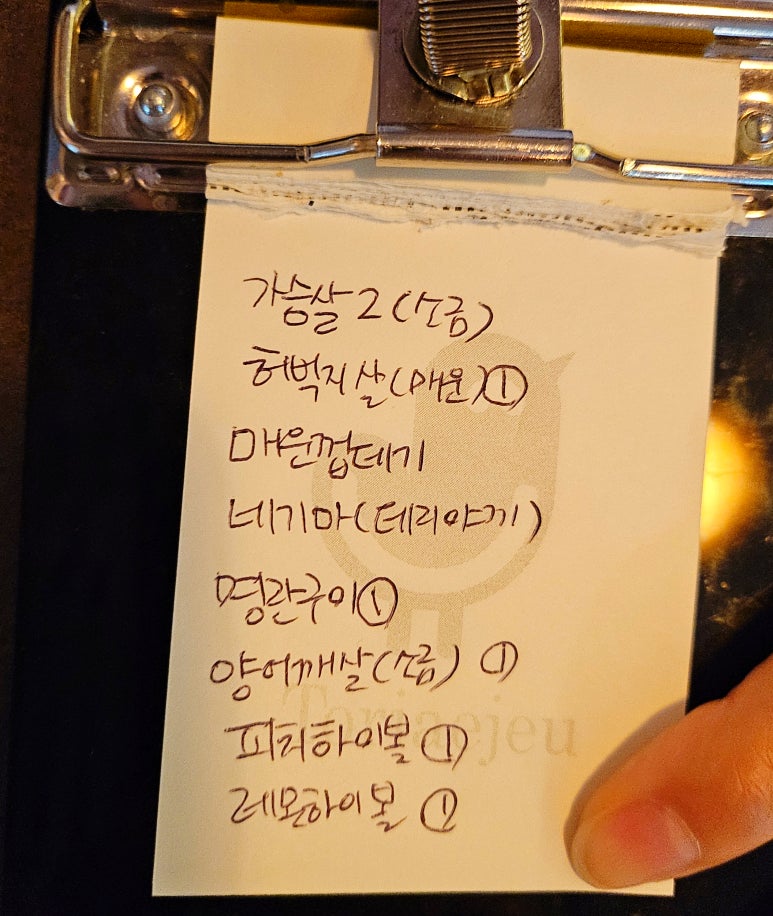 가슴살 2 (소금)
허벅지살(매운)①
매운껍데기
네기마(테리야끼)
명란구이①
양어깨살(소금) ①
피치하이볼 ①
레몬하이볼 ①
Toriaejeu